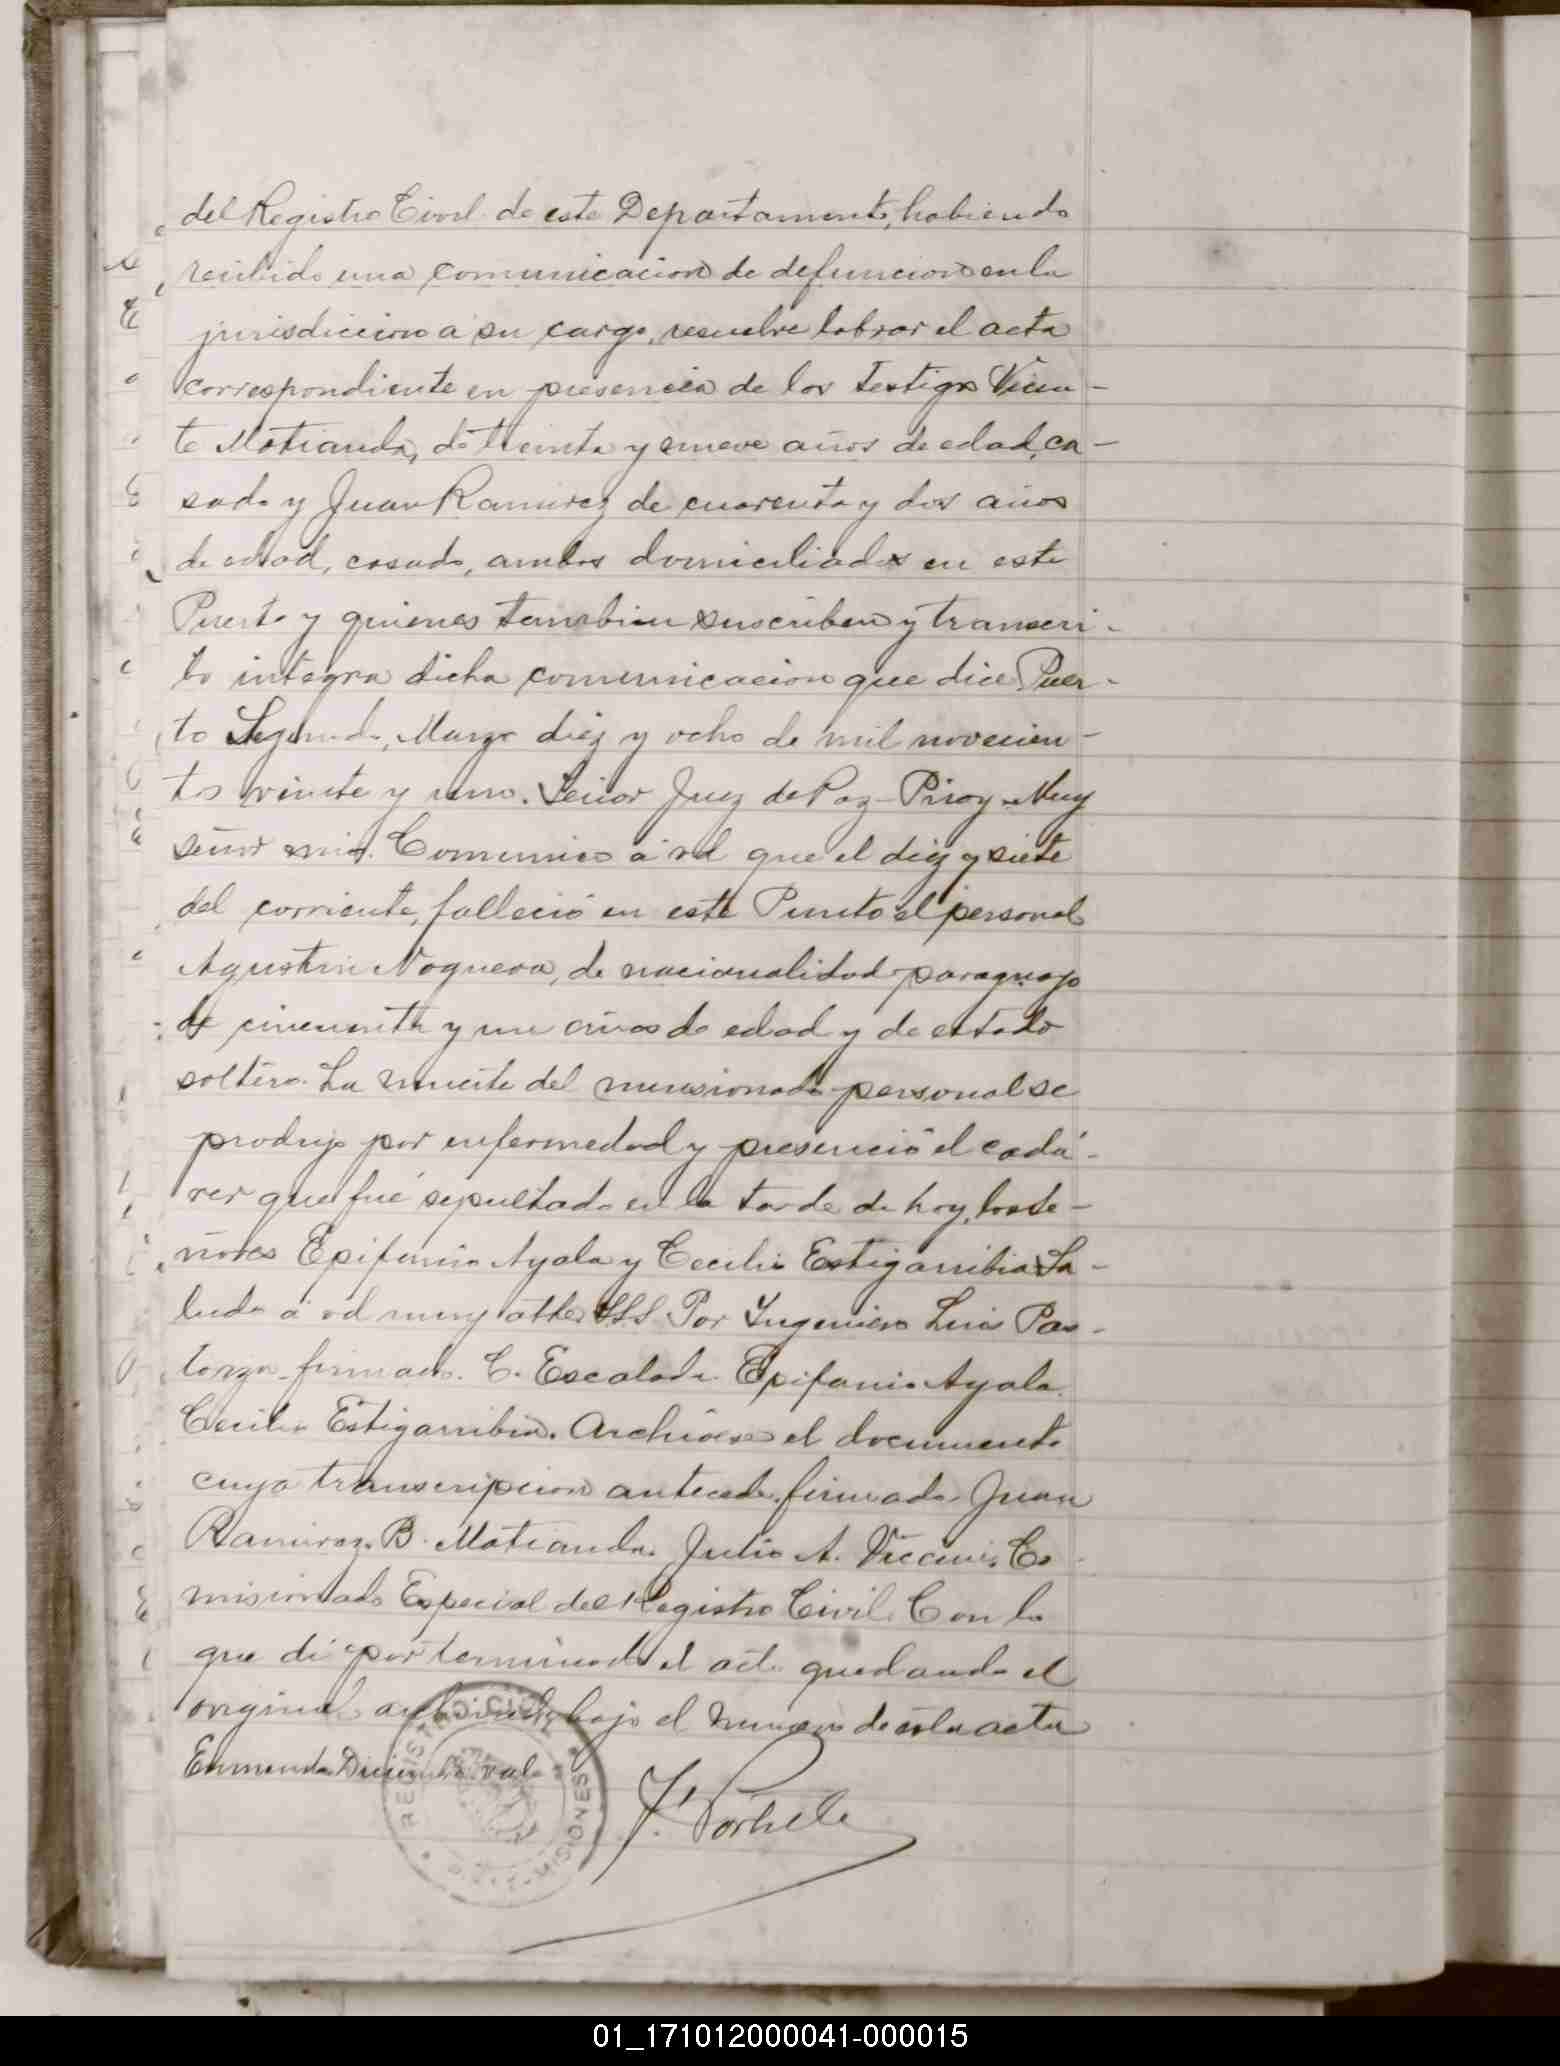 del Registro Civil de este Departamento, habiendo
recibido una comunicacion de defuncion en la
jurisdiccion a su cargo, resuelve labrar el acta
correspondiente en presencia de los testigos Vicen-
te Matiauda, de treinta y nueve años de edad, ca-
sado y Juan Ramirez de cuarenta y dos años
de edad, casado, ambos domiciliados en este
Puerto y quienes tambien suscriben y transcri-
bo integra dicha comunicacion que dice Puer-
to Segundo, Marzo diez y ocho de mil novecien-
tos veinte y uno. Señor Juez de Paz - Piray - Muy
señor mio. Comunico a vd que el diez y siete
del corriente, falleció en este Punto el personal
Agustin Noguera, de nacionalidad paraguayo
de cincuenta y un años de edad y de estado
soltero. La muerte del mensionado personal se
produjo por enfermedad y presenció el cadá-
ver que fué sepultado en la tarde de hoy, los se-
ñores Epifanio Ayala y Cecilio Estigarribia Sa-
luda a vd muy atte SSS. Por Ingeniero Luis Pas-
torza - firmado. C. Escalada Epifanio Ayala.
Cecilio Estigarribia. Archívese el documento
cuya transcripcion antecede, firmado Juan
Ramirez. B. Matiauda. Julio A. Co-
misionado Especial del Registro Civil. Con lo
que di por terminado el acto quedando el
original archivado bajo el numero de esta acta
Enmendado Diciembre vale
REGISTRO CIVIL
MISIONES
01_171012000041-000015